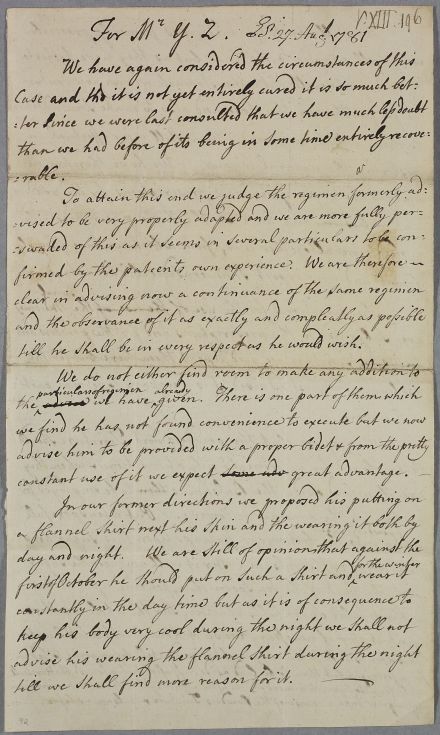 V.XIII. 196
For Mr Y. Z. Ed. 27 Augt 1761
We have again considered the circumstances of this
Case and tho it is not yet entirely cured it is so much bet-
:ter Since we were last consulted that we have much less doubt
than we had before of its being in some time entirely recove-
:rable.
To attain this end we judge the regimen formerly ad-
:vised to be very properly adapted and we are more fully per-
:swaded of this as it seems in several particulars to be con-
firmed by the patients own experience. We are therefore
clear in advising now a continuance of the same regimen
and the observance of it as exactly and compleatly as possible
till he shall be in every respect as he would wish.
We do not either find room to make any addition to
particulars of regimen already
the advice we have given. There is one part of them which
we find he has not found convenience to execute but we now
advise him to be provided with a proper bidet & from the pritty
constant use of it we expect Some adv great advantage.
In our former directions we proposed his putting on
a flannel Shirt next his Skin and the wearing it both by
day and night. We are Still of opinion that against the
for the winter
first of October he should put on Such a Shirt and wear it
constantly in the day time but as it is of consequence to
keep his body very cool during the night we shall not
advise his wearing the flannel Shirt during the night
till we Shall find more reason for it.